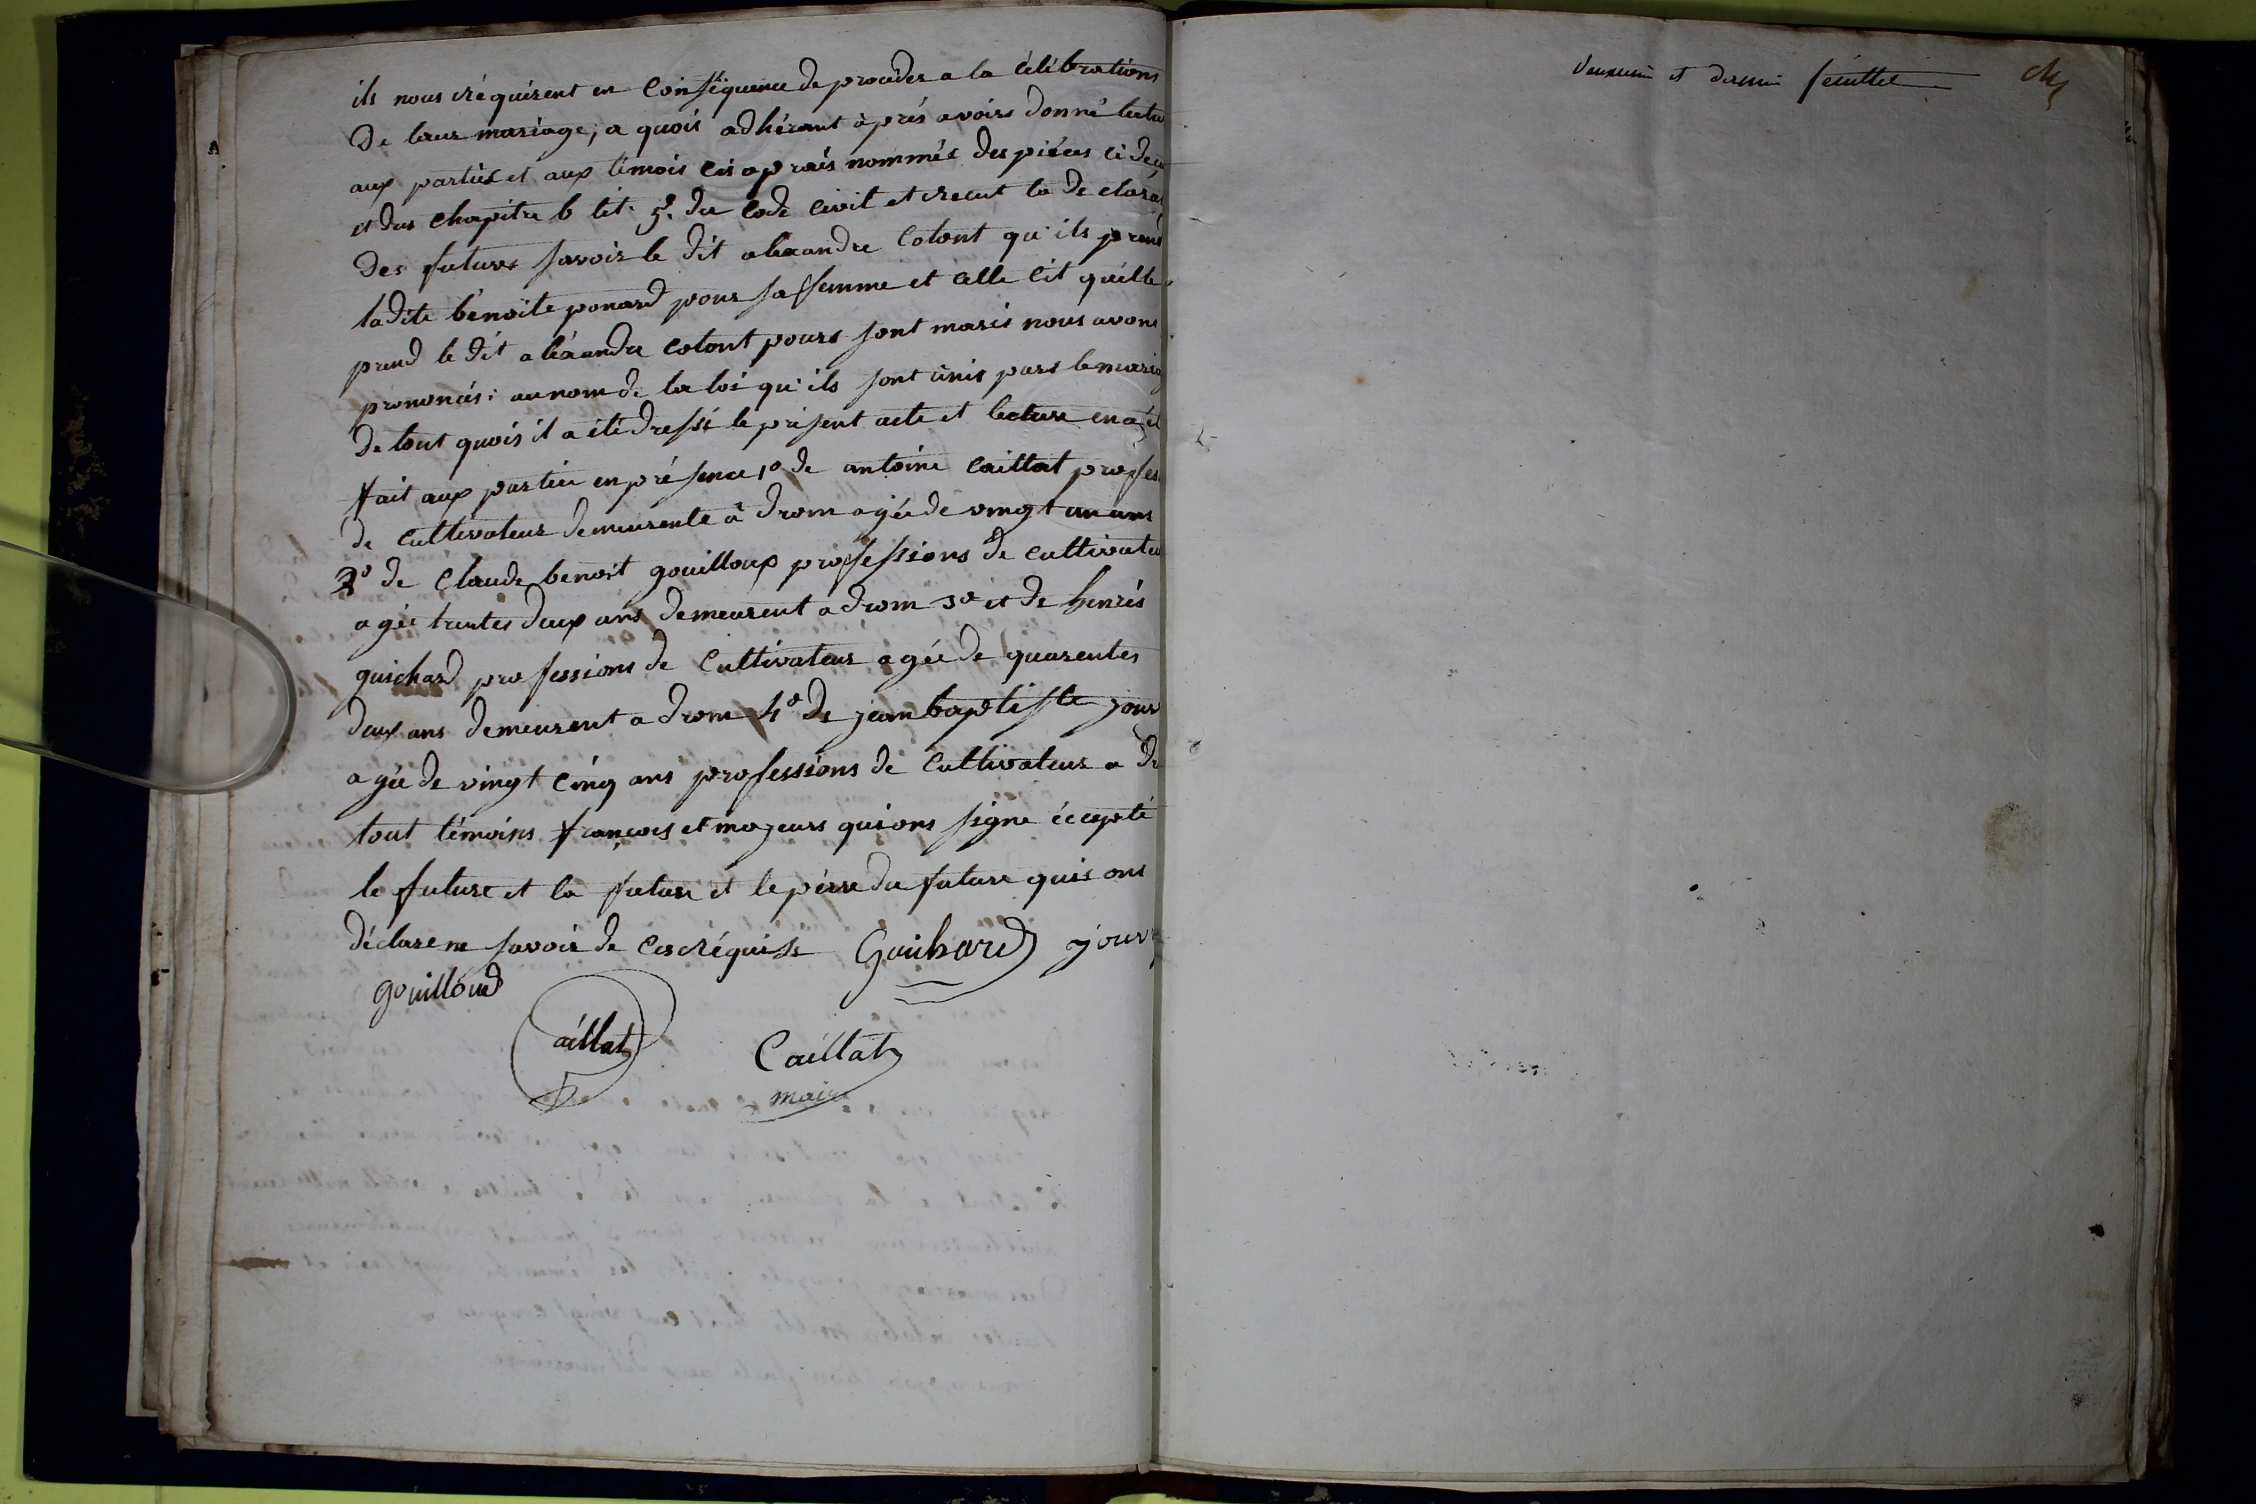 ils nous réquirent en conséquence de procéder a la célébrations
De leur mariage, a quois adhérant àprés avoirs donné lectu
aux partiés et aux témois cis aprais nommés des piéces ci deçu
et dus chapitre 6 tit. 5e. du code civil et recut la de clara
Des futures savoir le dit aléxandre Colont qu'ils prend
ladite bénoite ponard pour sa femme et celle cit quélle
prend le dit aléxandre colont pours sont maris nous avons
prononcés: au nom de la loi qu'ils sont unis pars le maria
De tout quois il a été dressé le présent acte et lecture en a ét
fait aux parties en présence 1º de antoine caillat profes
de cultivateur demeurente à drom agée de vingt un ans
2º de Claude benoit gouilloux professions de cultivateu
agée trentes deux ans demeurent a drom 3º et de henris
guichard professions de Cultivateur agée de quarentes
deux ans demeurent a drom 4º de jean baptiste jour
agée de vingt cinq ans professions de Cultivateur a dr
tout témoins françois et mageurs quions signe écepté
le future et la future et le pérre du future quis ons
déclare ne savoir de ces réquise Guihard jour
gouilloud
aillat Caillat
maire
et dernier feuillet